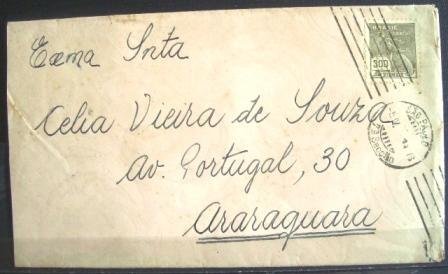 Exma Snta
Celia Vieira de Souza
Av. Portugal, 30
Araraquara
BRASIL
300
SÃO PAULO